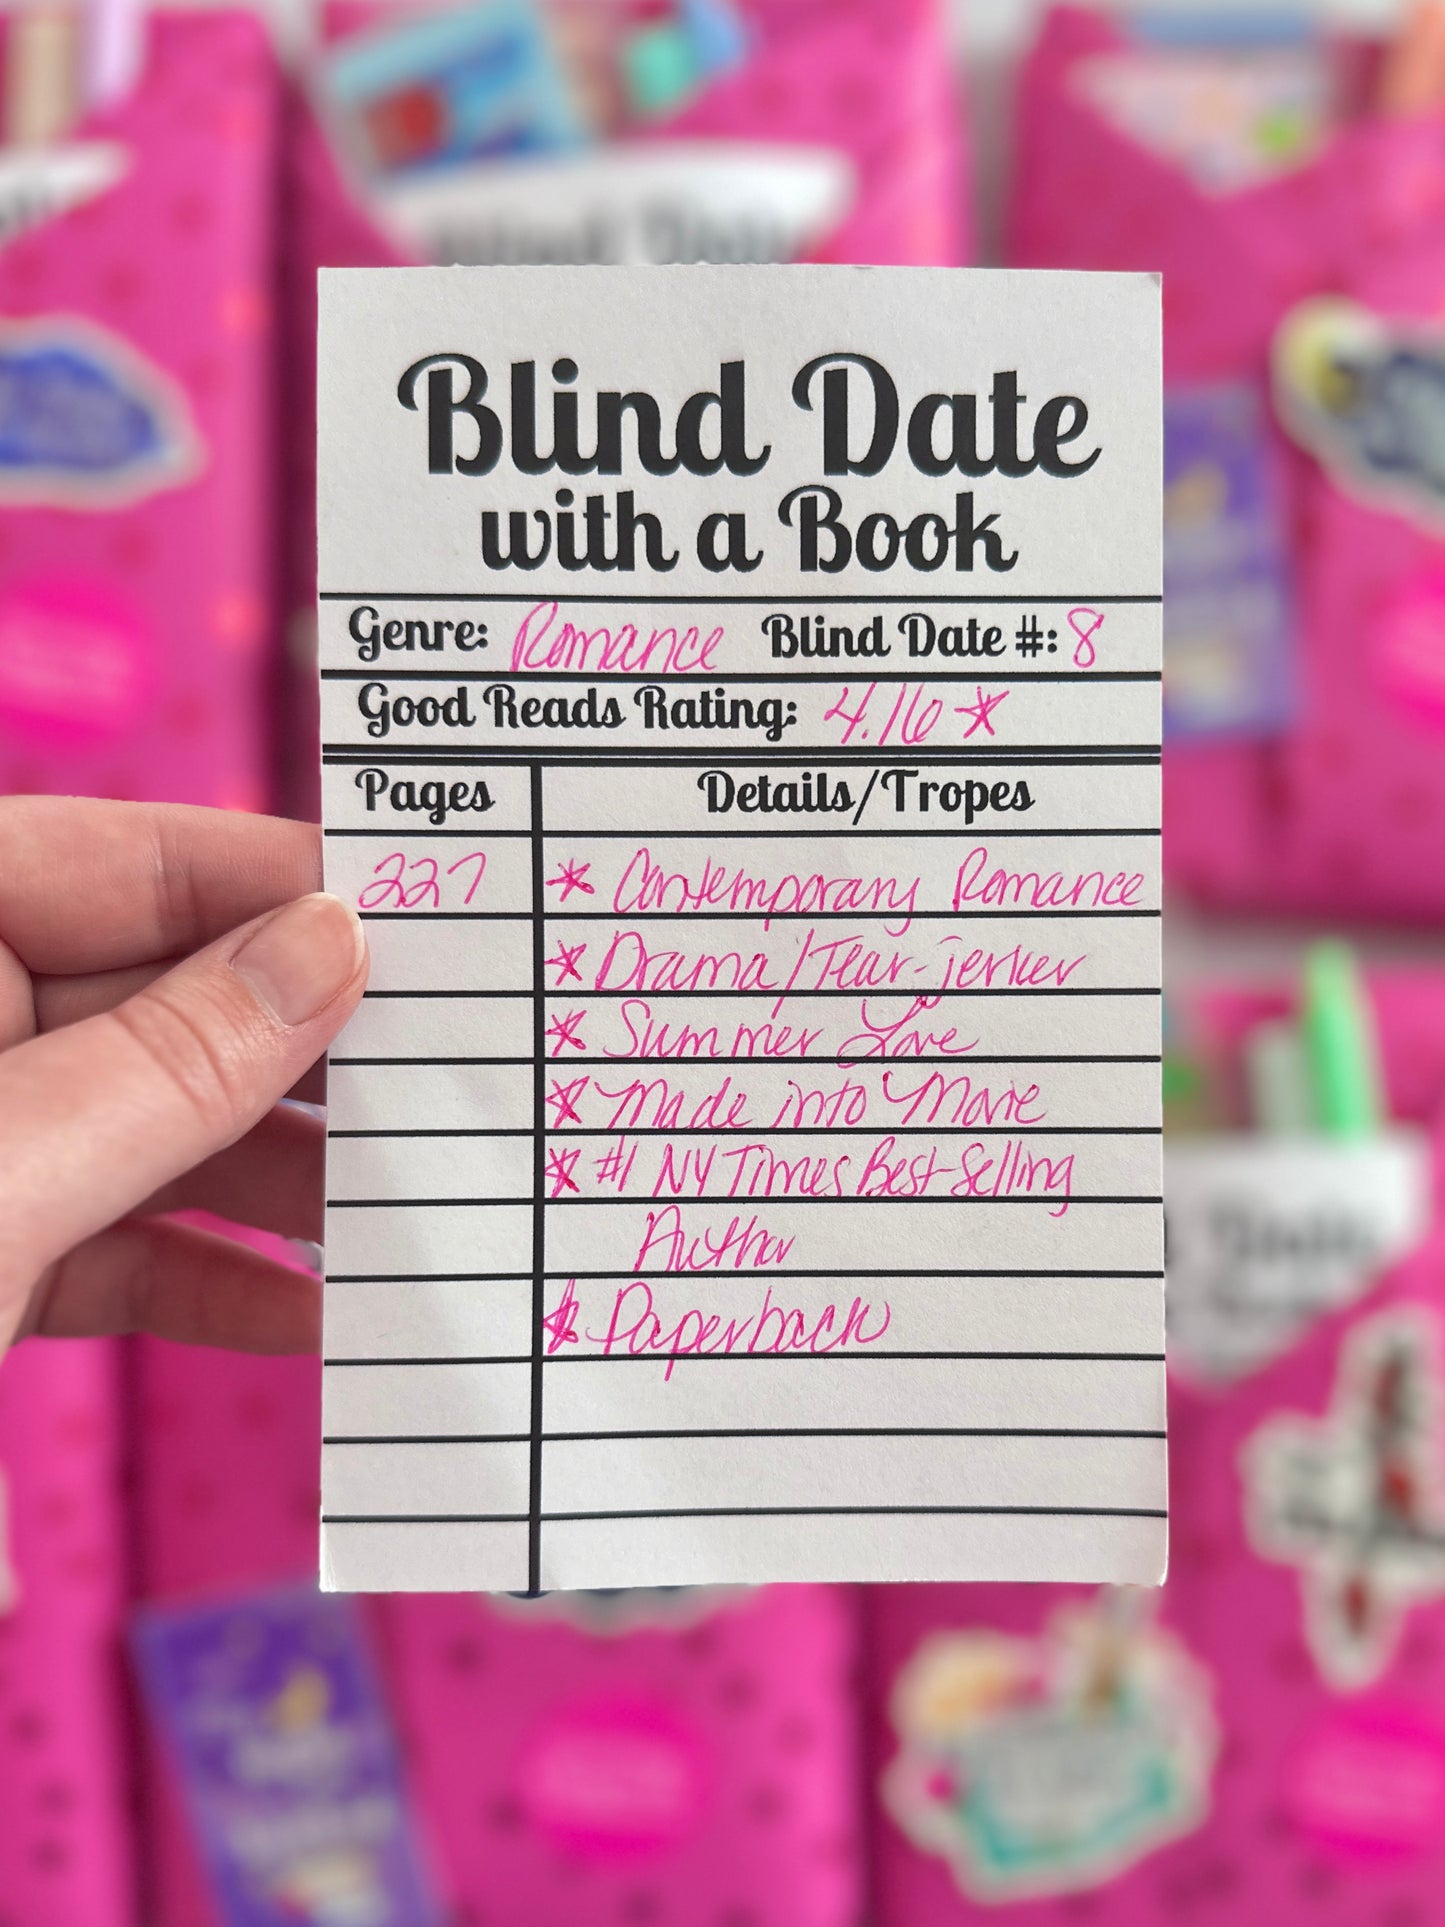 Blind Date
with a Book
Genre: Romance Blind Date #: 8
Good Reads Rating: 4.16 *
Pages Details/Tropes
227 * Contemporary Romance
* Drama/Tear-jerker
* Summer Love
* Made into Movie
* #1 NY Times Best-Selling
Author
* Paperback